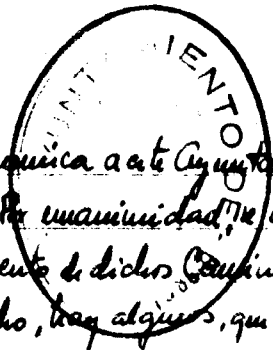 UNTAMIENTO DE
munica a este Ayunta
Por unanimidad, se
ento de dichos Camin
ho, hay algunos, que